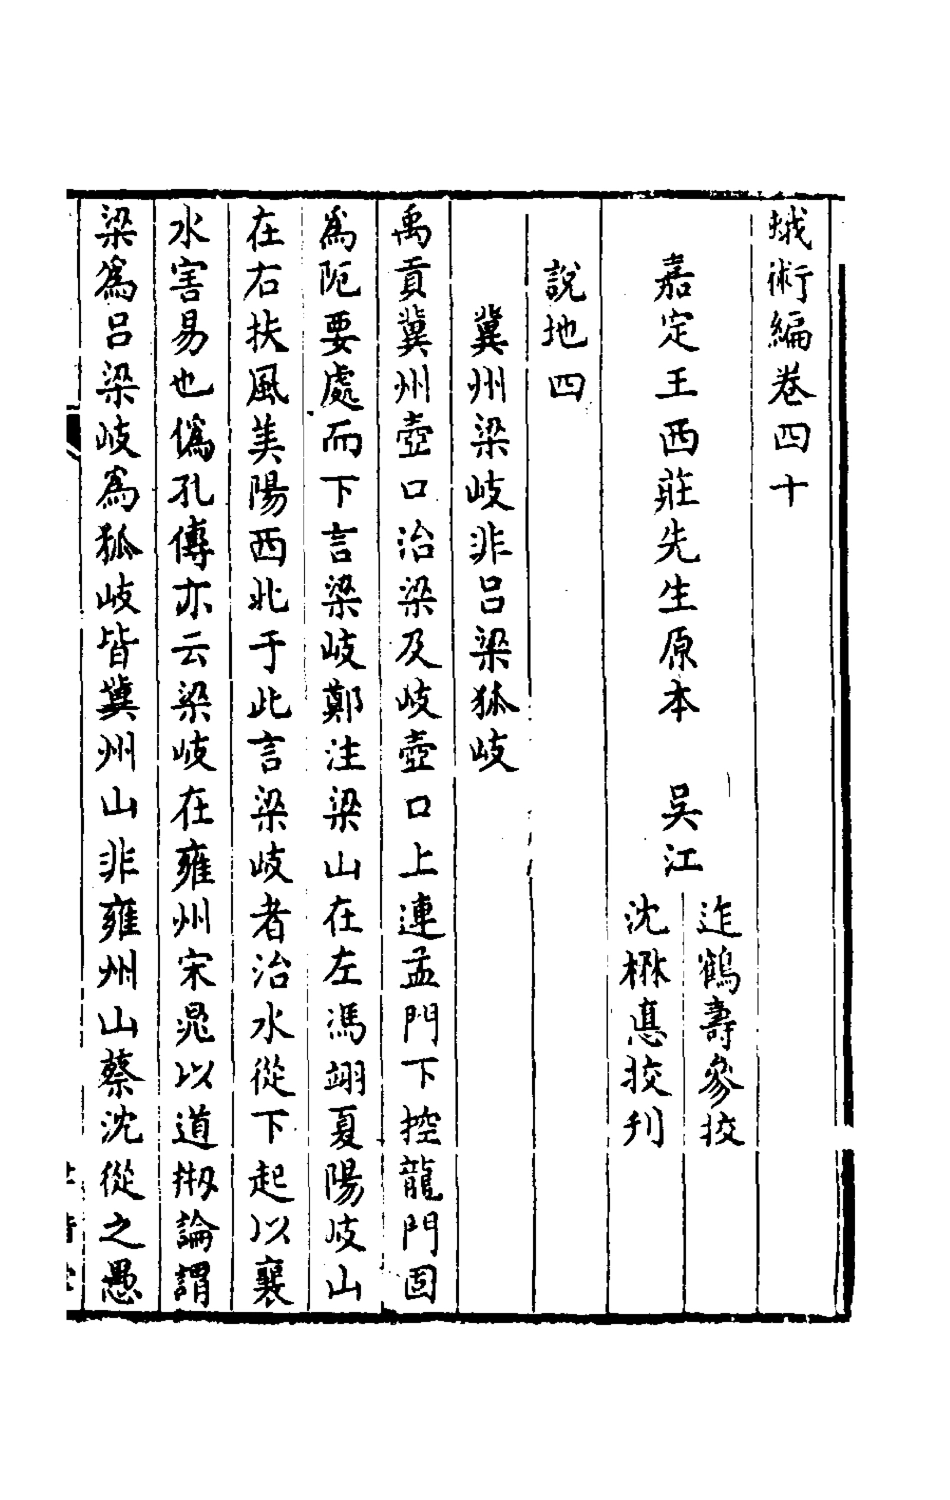 蛾術編卷四十
嘉定王西莊先生原本　吳江
迮鶴壽參挍
沈楙悳挍刋
說地四
冀州梁岐非呂梁狐岐
禹貢冀州壺口治梁及岐壺口上連孟門下控龍門固
爲阨要處而下言梁岐鄭注梁山在左馮翊夏陽岐山
在右扶風美陽西北于此言梁岐者治水從下起以襄
水害易也僞孔傳亦云梁岐在雍州宋晁以道刱論謂
梁爲呂梁岐爲狐岐皆冀州山非雍州山蔡沈從之愚